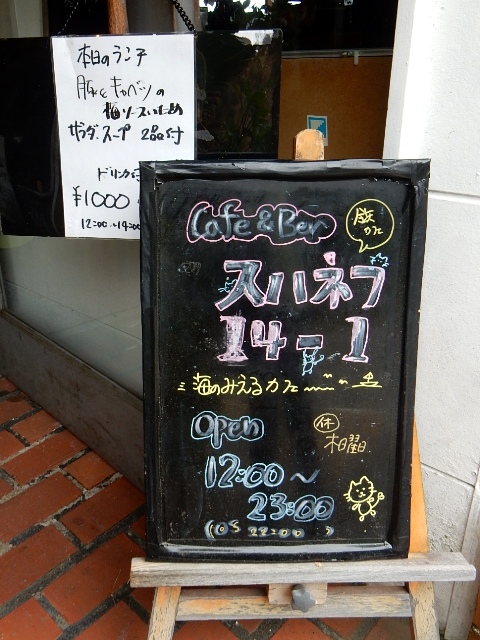 本日のランチ
豚とキャベツの
梅ソースいため
サラダ、スープ 2品付
ドリンク付
¥1000
12:00〜14:00
Cafe & Bar
旅カフェ
スハネフ
14-1
海のみえるカフェ
Open
休 木曜日
12:00〜
23:00
(LOS 22:00)